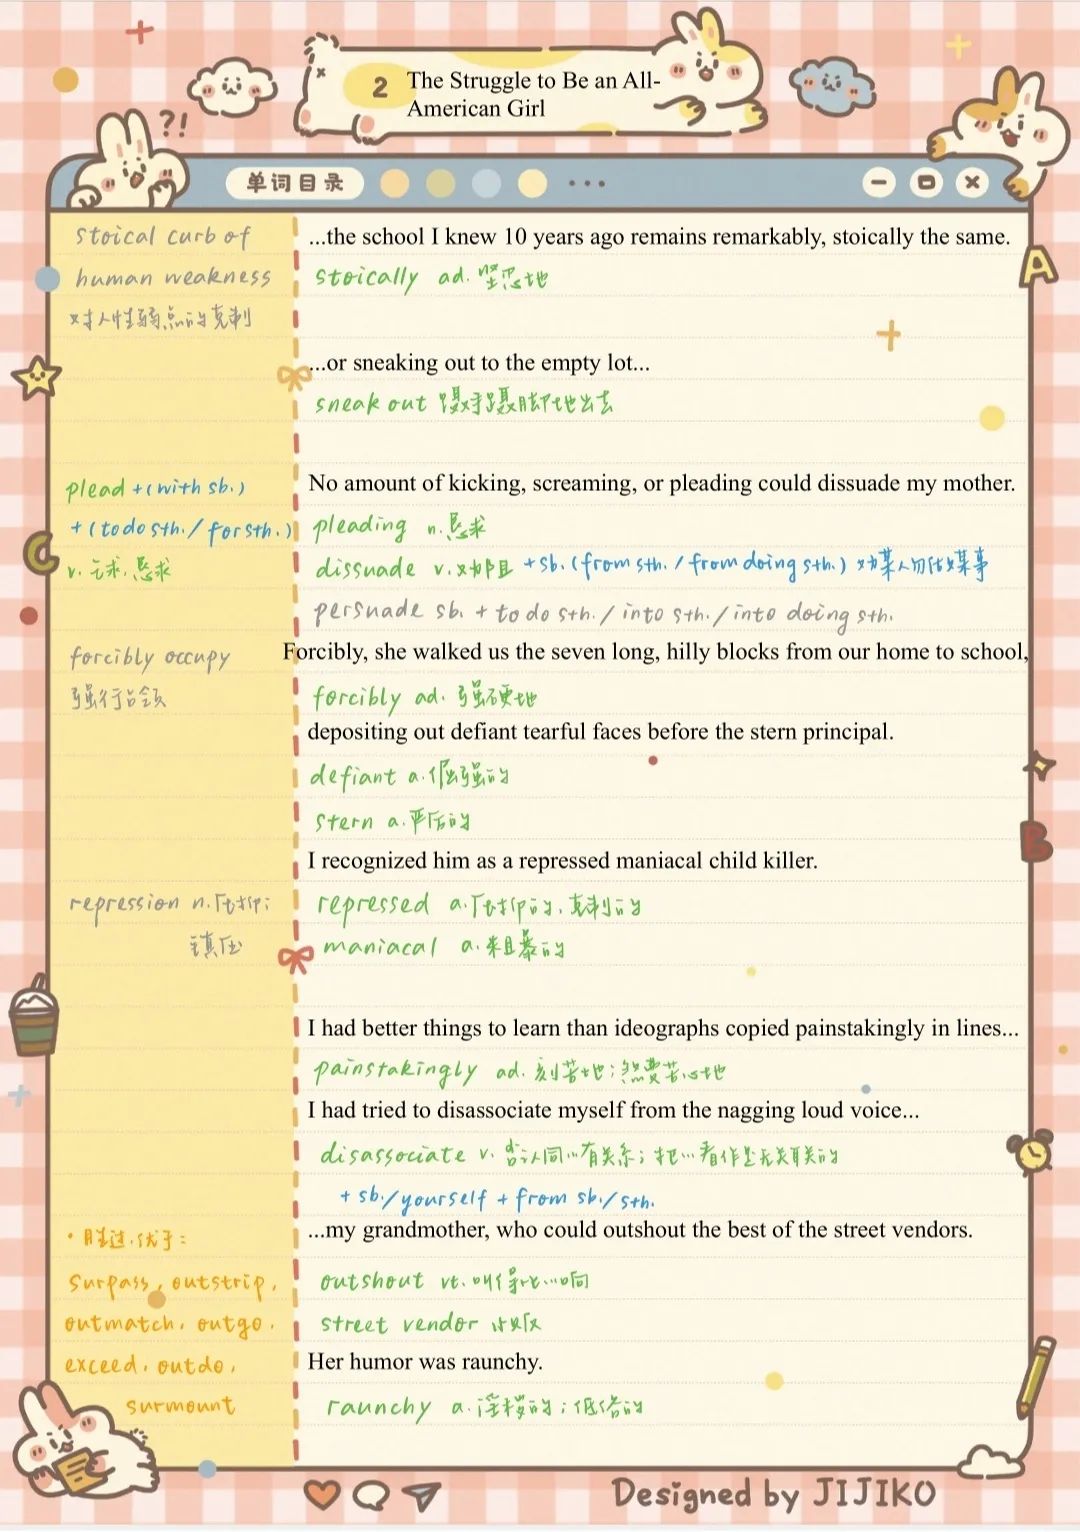 2 The Struggle to Be an All-
American Girl
?!
单词目录
stoical curb of
human weakness
对人性弱点的克制
...the school I knew 10 years ago remains remarkably, stoically the same.
stoically ad. 坚忍地
...or sneaking out to the empty lot...
sneak out 蹑手蹑脚地出去
plead +(with sb.)
+(to do sth./for sth.)
v. 乞求、恳求
No amount of kicking, screaming, or pleading could dissuade my mother.
pleading n. 恳求
dissuade v. 劝阻 +sb.(from sth./from doing sth.) 劝某人勿做某事
persuade sb. + to do sth./into sth./into doing sth.
forcibly occupy
强行占领
Forcibly, she walked us the seven long, hilly blocks from our home to school,
forcibly ad. 强硬地
depositing out defiant tearful faces before the stern principal.
defiant a. 倔强的
stern a. 严厉的
I recognized him as a repressed maniacal child killer.
repression n. 压抑;
镇压
repressed a. 压抑的、克制的
maniacal a. 粗暴的
I had better things to learn than ideographs copied painstakingly in lines...
painstakingly ad. 刻苦地;煞费苦心地
I had tried to disassociate myself from the nagging loud voice...
disassociate v. 否认同…有关系;把…看作是无关联的
+ sb./yourself + from sb./sth.
...my grandmother, who could outshout the best of the street vendors.
· 胜过、优于:
surpass, outstrip,
outmatch, outgo,
exceed, outdo,
surmount
outshout vt. 叫得比…响
street vendor 小贩
Her humor was raunchy.
raunchy a. 淫秽的;低俗的
A
C
B
Designed by JIJIKO